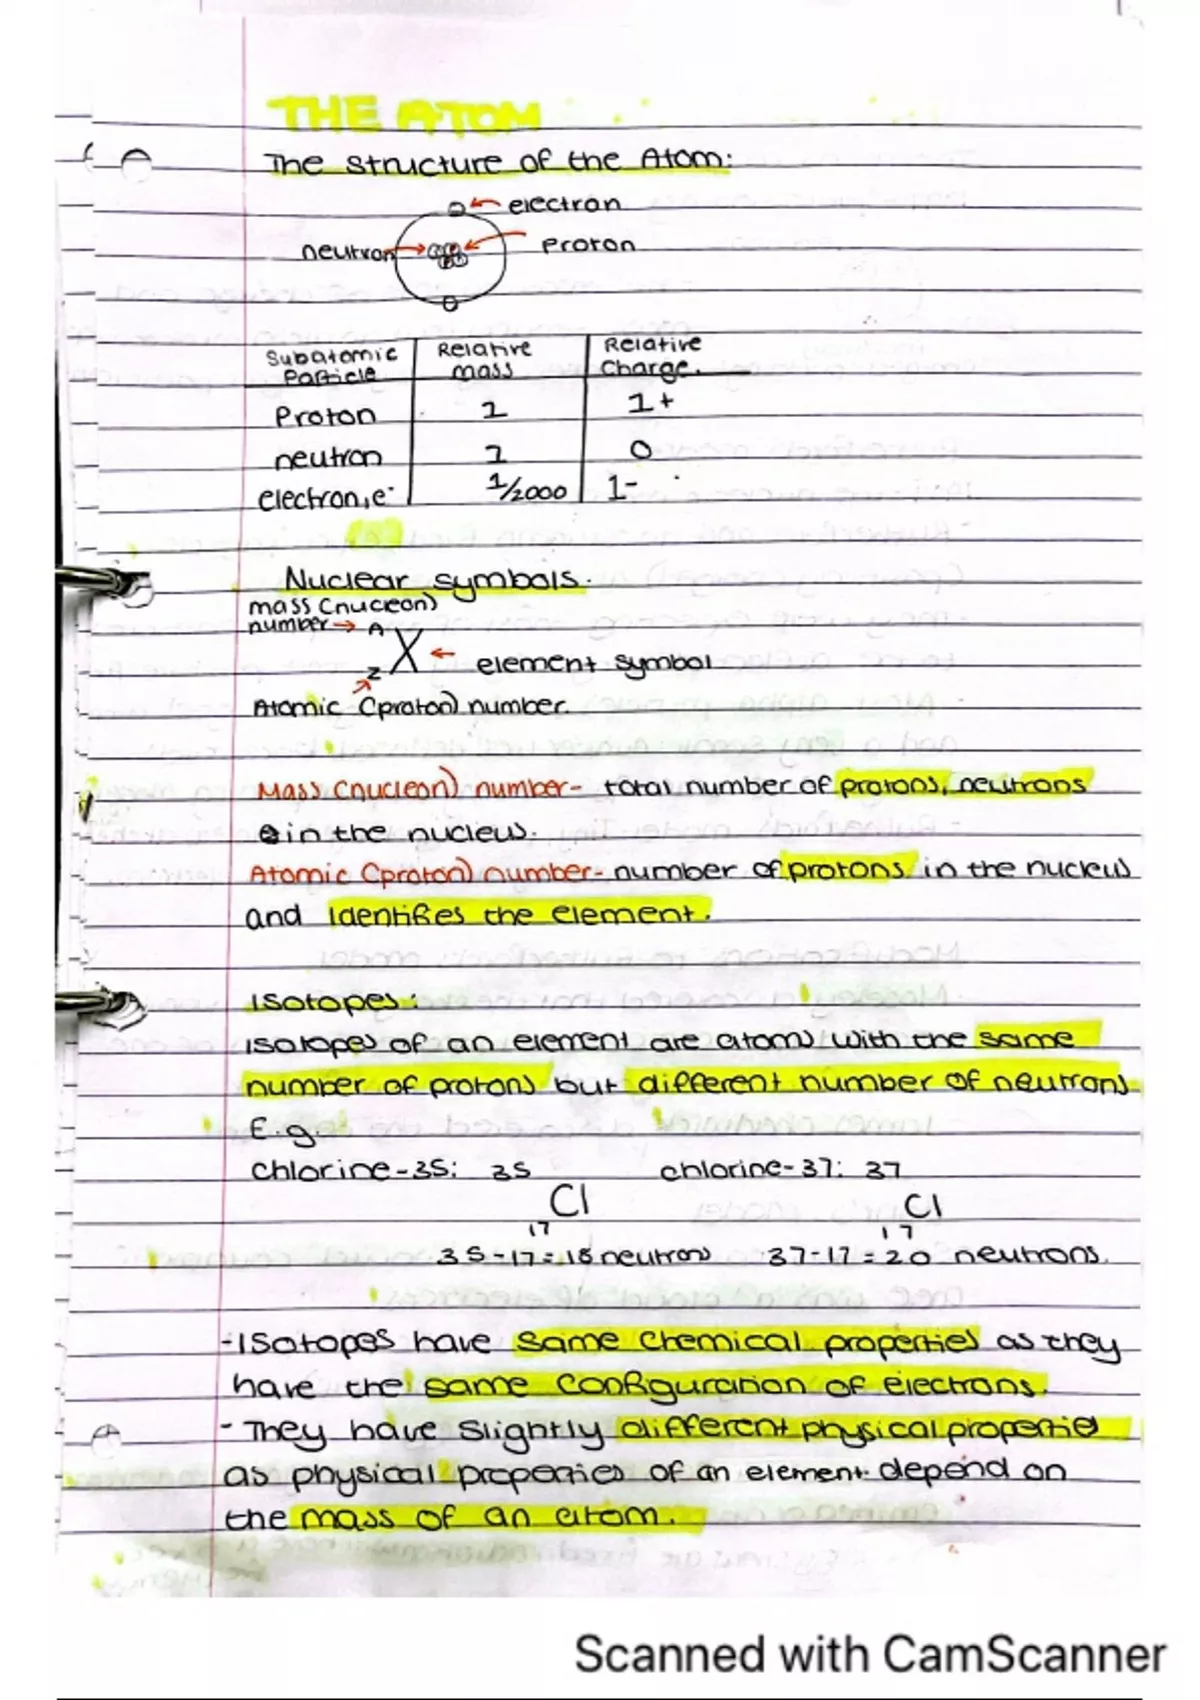 THE ATOM
The Structure of the Atom:
electron
neutron
proton
Subatomic Particle | Relative mass | Relative Charge.
Proton 1 1+
neutron 1 0
electron, e- 1/2000 1-
Nuclear symbols.
mass (nucleon)
number → A
X ← element symbol
Z
Atomic (proton) number.
Mass (nucleon) number- total number of protons, neutrons
in the nucleus.
Atomic (proton) number- number of protons in the nucleus
and identifies the element.
Isotopes:
isotopes of an element are atoms with the same
number of protons but different number of neutrons
E.g.
Chlorine-35: 35 chlorine-37: 37
Cl Cl
17 17
35-17=18 neutrons 37-17=20 neutrons.
-Isotopes have same chemical properties as they
have the same configuration of electrons.
- They have slightly different physical properties
as physical properties of an element depend on
the mass of an atom.
Scanned with CamScanner